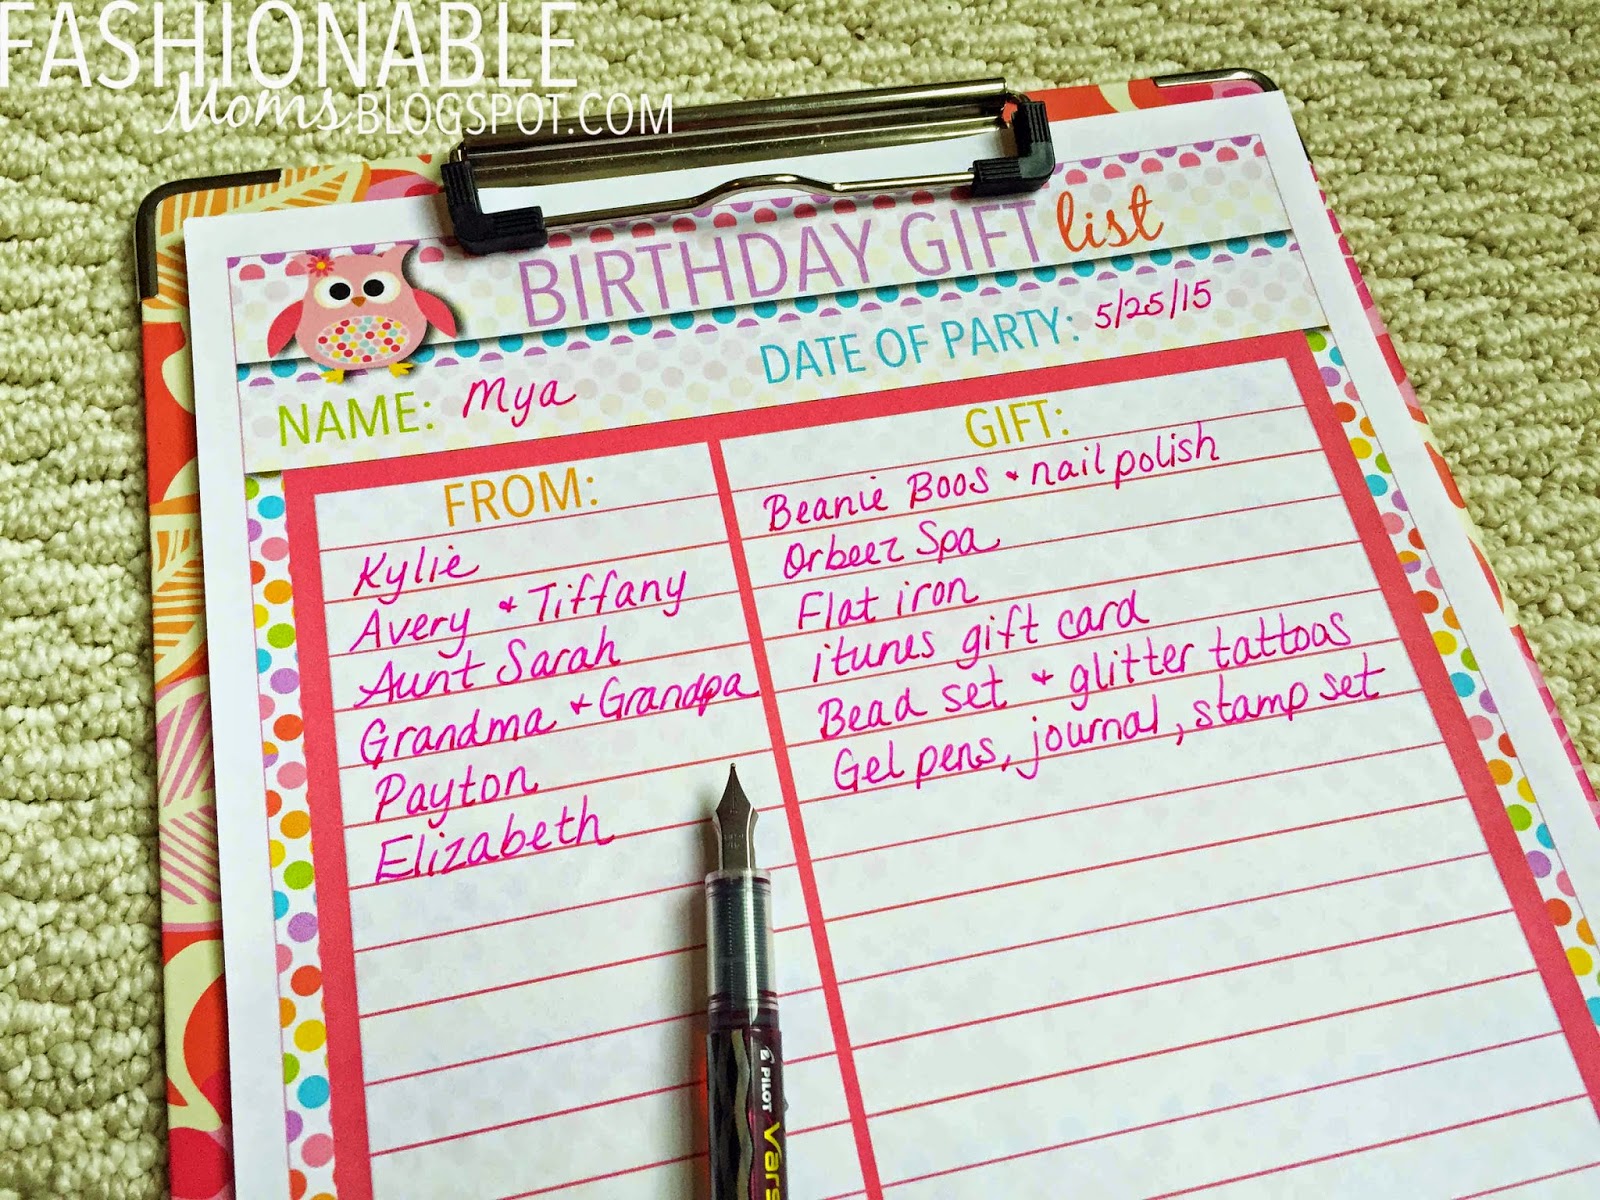 FASHIONABLE
Moms.BLOGSPOT.COM
BIRTHDAY GIFT list
NAME: Mya DATE OF PARTY: 5/25/15
FROM: GIFT:
Kylie Beanie Boos + nail polish
Avery + Tiffany Orbeez Spa
Aunt Sarah Flat iron
Grandma + Grandpa itunes gift card
Payton Bead set + glitter tattoos
Elizabeth Gel pens, journal, stamp set
PILOT
Vars